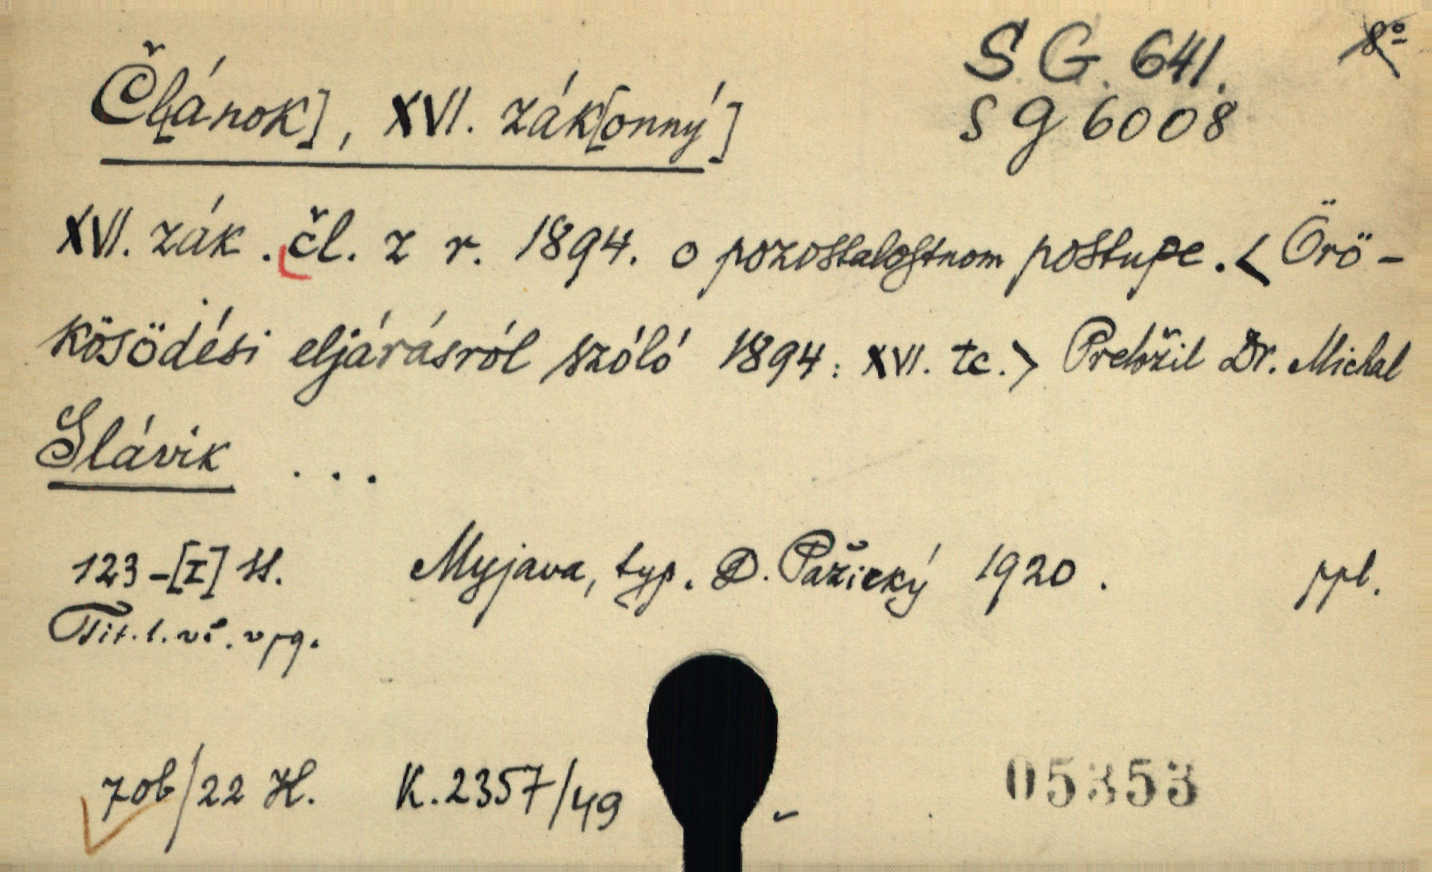 S.G. 641. 8°
Čl[ánok], XVI. zák[onný]
SG 6008
XVI. zák. čl. z r. 1894. o pozostalostnom postupe. < Örö-
kösödési eljárásról szóló 1894: XVI. tc. > Preložil Dr. Michal
Slávik ...
123-[I] st. Myjava, typ. D. Pažický 1920. ppl.
Tit. l.
/22 H. K. 2357/49
05353